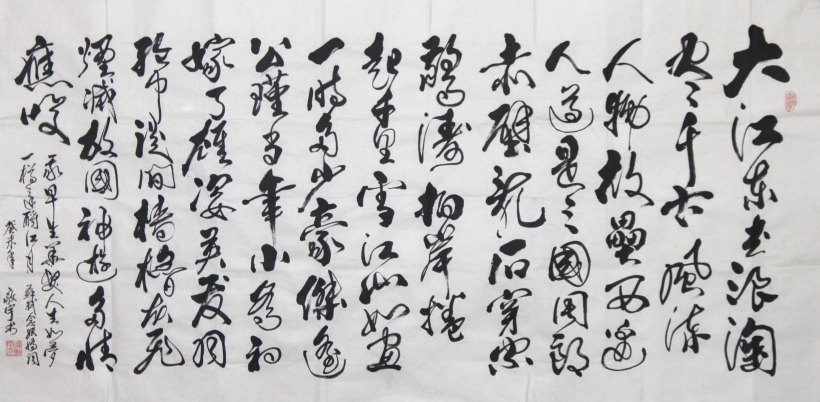 大江東去浪淘
尽千古風流
人物故壘西邊
人道是三國周郎
赤壁亂石穿空
驚濤拍岸捲
起千里雪江山如畫
一時多少豪傑遙
公瑾當年小喬初
嫁了雄姿英發羽
巾談間檣櫓灰飛
煙滅故國神遊多情
應笑
我早生華髮人生如夢
一樽還酹江月 蘇軾念奴嬌詞
癸未年 書